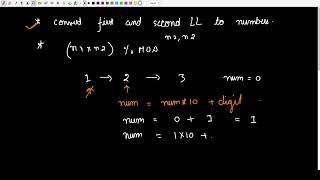 * convert first and second LL to numbers.
n1, n2
* (n1 x n2) % MOD
1 → 2 → 3 num = 0
num = num*10 + digit
num = 0 + 1 = 1
num = 1x10 + .